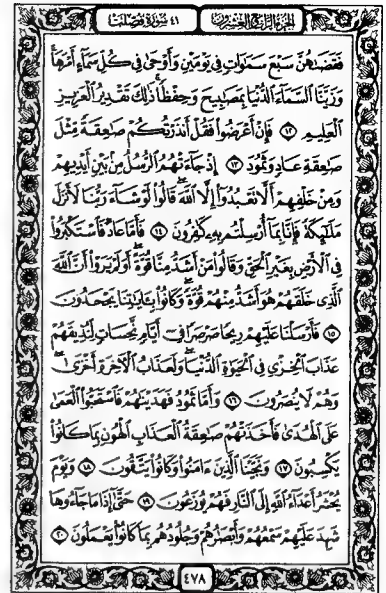 الجزء الرابع والعشرون ٤١ سورة فصلت
فَقَضَىٰهُنَّ سَبْعَ سَمَٰوَاتٍ فِى يَوْمَيْنِ وَأَوْحَىٰ فِى كُلِّ سَمَآءٍ أَمْرَهَا ۚ
وَزَيَّنَّا ٱلسَّمَآءَ ٱلدُّنْيَا بِمَصَٰبِيحَ وَحِفْظًا ۚ ذَٰلِكَ تَقْدِيرُ ٱلْعَزِيزِ
ٱلْعَلِيمِ ١٢ فَإِنْ أَعْرَضُوا۟ فَقُلْ أَنذَرْتُكُمْ صَٰعِقَةً مِّثْلَ
صَٰعِقَةِ عَادٍ وَثَمُودَ ١٣ إِذْ جَآءَتْهُمُ ٱلرُّسُلُ مِنۢ بَيْنِ أَيْدِيهِمْ
وَمِنْ خَلْفِهِمْ أَلَّا تَعْبُدُوٓا۟ إِلَّا ٱللَّهَ ۖ قَالُوا۟ لَوْ شَآءَ رَبُّنَا لَأَنزَلَ
مَلَٰٓئِكَةً فَإِنَّا بِمَآ أُرْسِلْتُم بِهِۦ كَٰفِرُونَ ١٤ فَأَمَّا عَادٌ فَٱسْتَكْبَرُوا۟
فِى ٱلْأَرْضِ بِغَيْرِ ٱلْحَقِّ وَقَالُوا۟ مَنْ أَشَدُّ مِنَّا قُوَّةً ۖ أَوَلَمْ يَرَوْا۟ أَنَّ ٱللَّهَ
ٱلَّذِى خَلَقَهُمْ هُوَ أَشَدُّ مِنْهُمْ قُوَّةً ۖ وَكَانُوا۟ بِـَٔايَٰتِنَا يَجْحَدُونَ
١٥ فَأَرْسَلْنَا عَلَيْهِمْ رِيحًا صَرْصَرًا فِىٓ أَيَّامٍ نَّحِسَاتٍ لِّنُذِيقَهُمْ
عَذَابَ ٱلْخِزْىِ فِى ٱلْحَيَوٰةِ ٱلدُّنْيَا ۖ وَلَعَذَابُ ٱلْءَاخِرَةِ أَخْزَىٰ ۖ
وَهُمْ لَا يُنصَرُونَ ١٦ وَأَمَّا ثَمُودُ فَهَدَيْنَٰهُمْ فَٱسْتَحَبُّوا۟ ٱلْعَمَىٰ
عَلَى ٱلْهُدَىٰ فَأَخَذَتْهُمْ صَٰعِقَةُ ٱلْعَذَابِ ٱلْهُونِ بِمَا كَانُوا۟
يَكْسِبُونَ ١٧ وَنَجَّيْنَا ٱلَّذِينَ ءَامَنُوا۟ وَكَانُوا۟ يَتَّقُونَ ١٨ وَيَوْمَ
يُحْشَرُ أَعْدَآءُ ٱللَّهِ إِلَى ٱلنَّارِ فَهُمْ يُوزَعُونَ ١٩ حَتَّىٰٓ إِذَا مَا جَآءُوهَا
شَهِدَ عَلَيْهِمْ سَمْعُهُمْ وَأَبْصَٰرُهُمْ وَجُلُودُهُم بِمَا كَانُوا۟ يَعْمَلُونَ ٢٠
٤٧٨